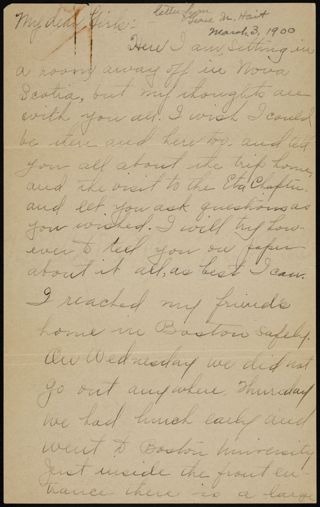 My dear Girls:
letter from
Marie M. Hait
March 3, 1900
Here I am sitting in
a room away off in Nova
Scotia, but my thoughts are
with you all. I wish I could
be there and here too, and tell
you all about the trip home,
and the visit to the Eta Chapter,
and let you ask questions as
you wished. I will try how-
ever to tell you on paper
about it all, as best I can.
I reached my friend's
home in Boston safely.
On Wednesday we did not
go out anywhere. Thursday
we had lunch early and
went to Boston University
Just inside the front en-
trance there is a large